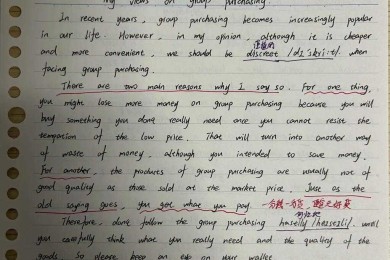 my views on group purchasing.
In recent years, group purchasing becomes increasingly popular
in our life. However, in my opinion, although it is cheaper
谨慎的
and more convenient, we should be discreet /dɪˈskriːt/ when
facing group purchasing.
There are two main reasons why I say so. For one thing,
you might lose more money on group purchasing because you will
buy something you don't really need once you cannot resist the
temptation of the low price. That will turn into another way
of waste of money, although you intended to save money.
For another, the products of group purchasing are usually not of
good quality as those sold at the market price. Just as the
old saying goes, you get what you pay. 一分钱一分货
Therefore, don't follow the group purchasing hastily until
you carefully think what you really need and the quality of the
goods. So please keep an eye on your wallet